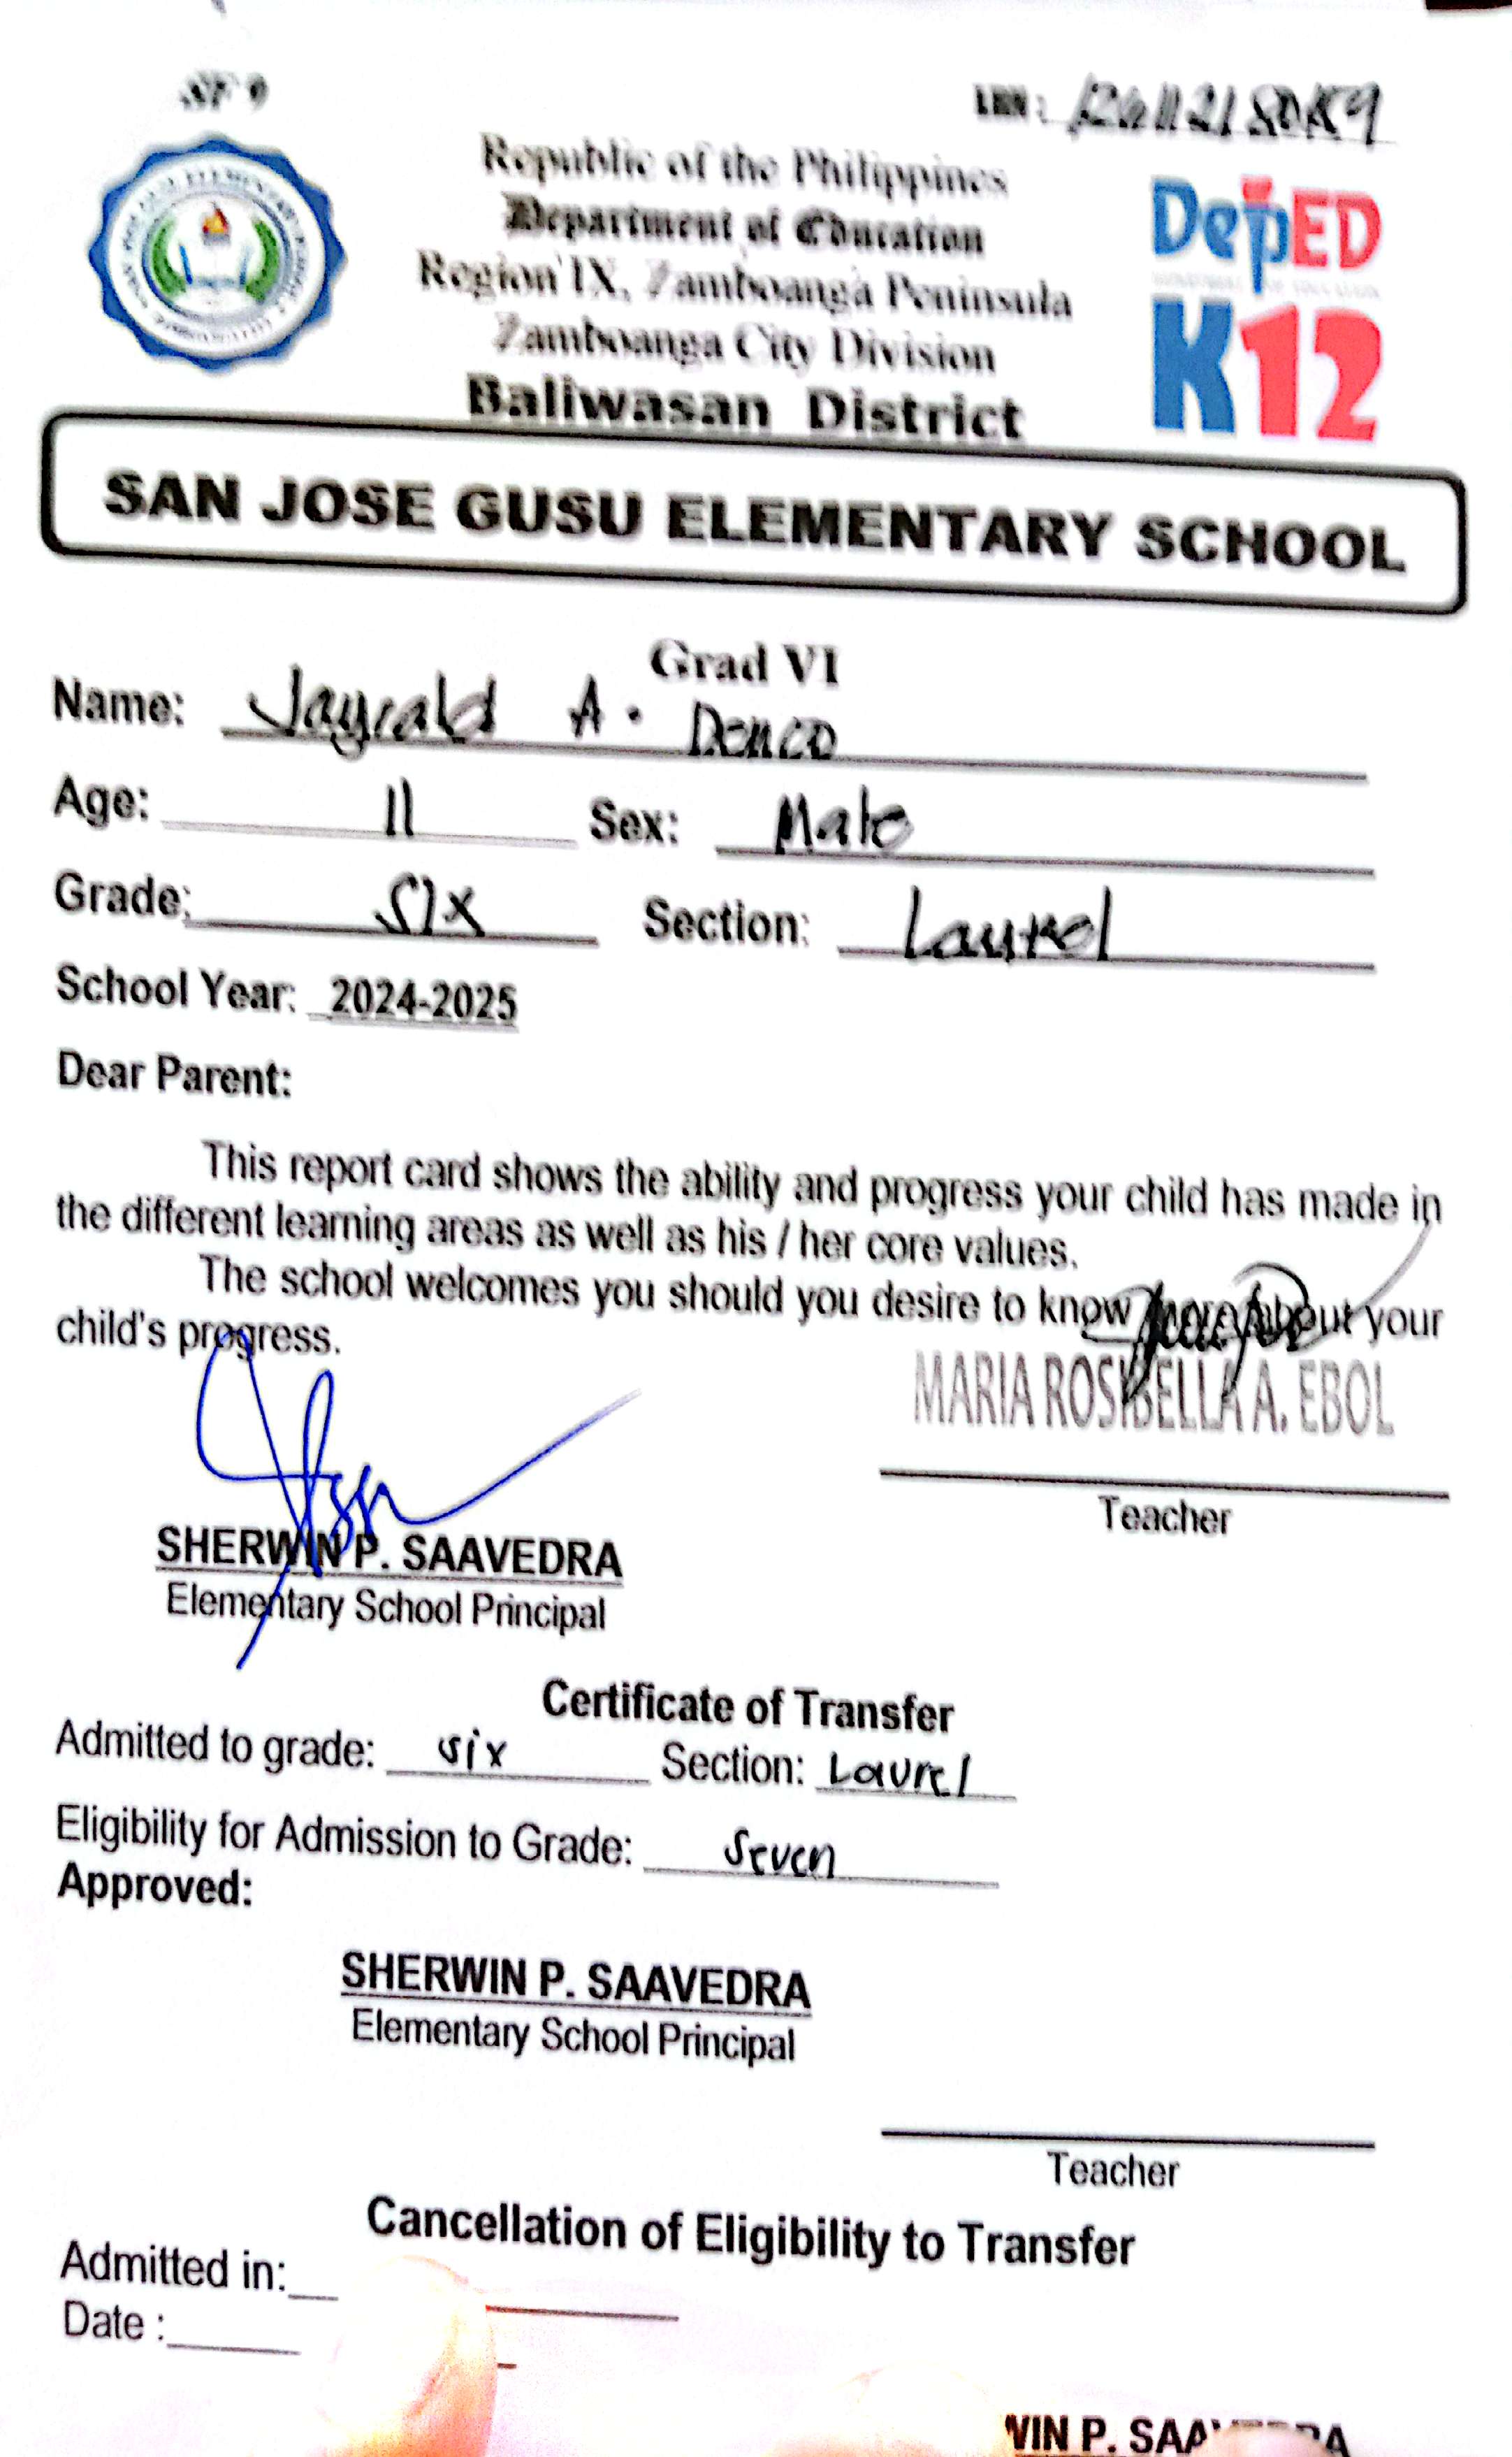 SF 9
LRN:
Republic of the Philippines
Department of Education
Region IX, Zamboanga Peninsula
Zamboanga City Division
Baliwasan District
DepED
K12
SAN JOSE GUSU ELEMENTARY SCHOOL
Grad VI
Name: Jayrald A.
Age: 11 Sex: Male
Grade: Six Section: Laurel
School Year: 2024-2025
Dear Parent:
This report card shows the ability and progress your child has made in
the different learning areas as well as his / her core values.
The school welcomes you should you desire to know more about your
child's progress.
MARIA ROSIBELLA A. EBOL
Teacher
SHERWIN P. SAAVEDRA
Elementary School Principal
Certificate of Transfer
Admitted to grade: six Section: Laurel
Eligibility for Admission to Grade: Seven
Approved:
SHERWIN P. SAAVEDRA
Elementary School Principal
Teacher
Cancellation of Eligibility to Transfer
Admitted in:
Date :
WIN P. SAA